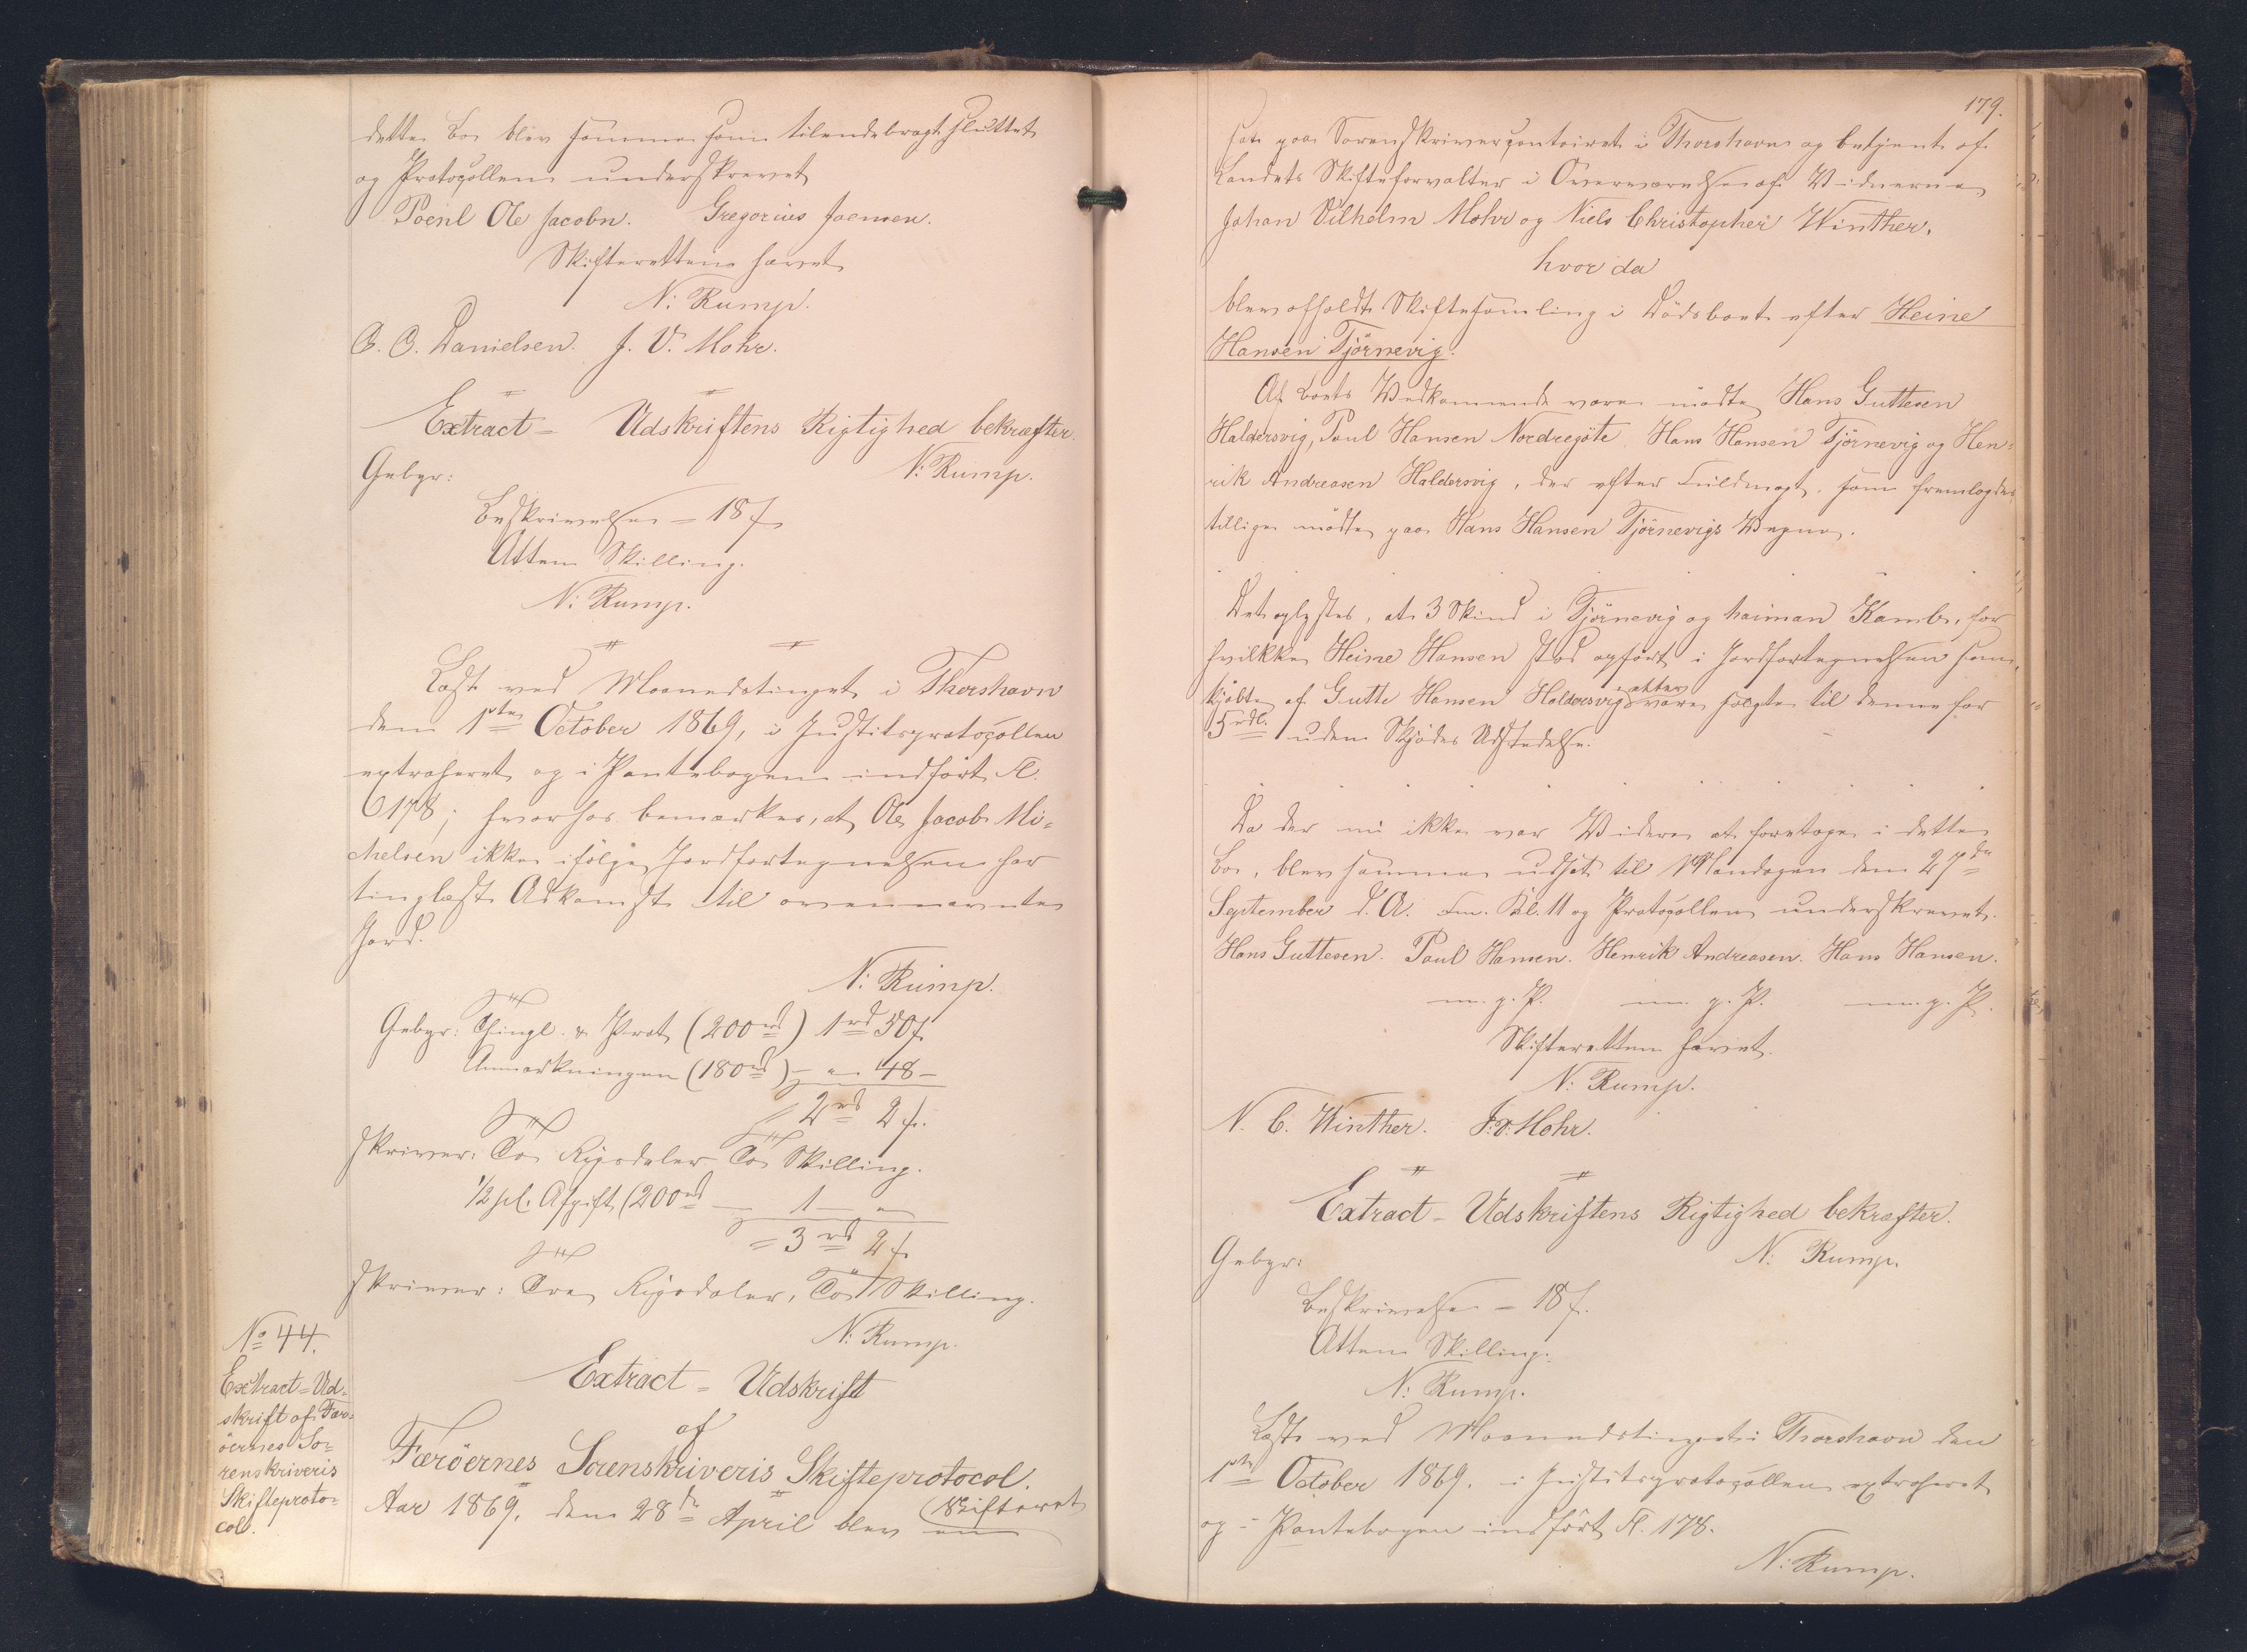 dette Bo blev samme som tilendebragt sluttet
og Protocollen underskrevet
Poul Ole Jacobn. Gregorius Joensen.
Skifteretten hævet
N: Rump.
J. V. Mohr.
Danielsen.
Extract - Udskriftens Rigtighed bekræfter.
N: Rump.
Gebyr:
Beskrivelse - 18 ſ
Atten Skilling.
N: Rump.
Læst ved Maanedstinget i Thorshavn
den 1ste October 1869, i Justitsprotocollen
extraheret og i Pantebogen indført Fl.
178; hvorhos bemærkes, at Ole Jacob Mi-
chelsen ikke ifølge Jordfortegnelsen har
tinglæst Adkomst til ovennævnte
Jord.
N: Rump.
Gebyr: Thingl. & Prot (200rd) 1rd 50 ſ
Anmærkningen (180rd) - " 48 -
2rd 2 ſ.
skriver: To Rigsdaler To Skilling.
1/2 pCt. Afgift (200rd - 1 - "
= 3rd 2 ſ
skriver: Tre Rigsdaler, To Skilling.
N: Rump.
No 44.
Extract-Ud-
skrift af Fær-
öernes So-
renskriveris
Skifteproto-
col.
Extract - Udskrift
af
Færöernes Sorenskriveris Skifteprotocol.
Aar 1869, den 28de April blev en Skifteret
179.
sat paa Sorenskrivercontoiret i Thorshavn og betjent af
Landets Skifteforvalter i Overværelse af Vidnerne
Johan Vilhelm Mohr og Niels Christopher Winther,
hvor da
blev afholdt Skiftesamling i Dödsboet efter Heine
Hansen Tjörnevig.
Af Boets Vedkommende vare mödte Hans Guttesen
Haldersvig, Poul Hansen Nordregöte, Hans Hansen Tjörnevig og Hen-
rik Andreasen Haldersvig, der efter Fuldmagt, som fremlagdes
tillige mödte paa Hans Hansen Tjörnevigs Vegne.
Det oplystes, at 3 Skind i Tjörnevig og haiman Kamb, for
hvilke Heine Hansen stod opfört i Jordfortegnelsen som
kjöbte af Gutte Hansen Haldersvig atter vare solgte til denne for
5rdl. uden Skjödes Udstedelse.
Da der nu ikke var Videre at foretage i dette
Bo, blev samme udsat til Mandagen den 27de
September d. A. Fm. Kl. 11 og Protocollen underskrevet.
Hans Guttesen. Poul Hansen. Henrik Andreasen. Hans Hansen.
m. p. P. m. p. P. m. p. P.
Skifteretten hævet.
N: Rump.
N. C. Winther. J. V. Mohr.
Extract - Udskriftens Rigtighed bekræfter.
N: Rump.
Gebyr:
Beskrivelse - 18 ſ.
Atten Skilling.
N: Rump.
Læst ved Maanedstinget i Thorshavn den
1ste October 1869. i Justitsprotocollen extraheret
og i Pantebogen indfört Fl. 178.
N: Rump.